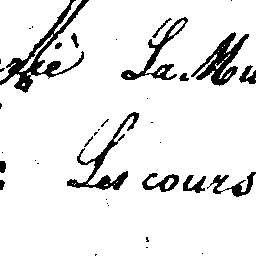 La Mu
Les cours